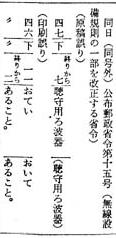 同日(同号外)公布郵政省令第十五号(無線設
備規則の一部を改正する省令)
(原稿誤り)
四七 下 終りから七 聴守用ろ波器 (聴守用ろ波器)
(印刷誤り)
四六 下 一一 おてい おいて
〃 〃 終りから二 あること。 あること。